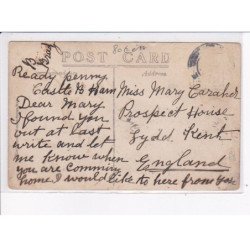 POST CARD
Address
Ready Penny
Castle B Ham
Dear Mary
I found you
out at last
write and let
me know when
you are comming
home I would like to here from you
Miss Mary Caraher
Prospect House
Lydd Kent
England